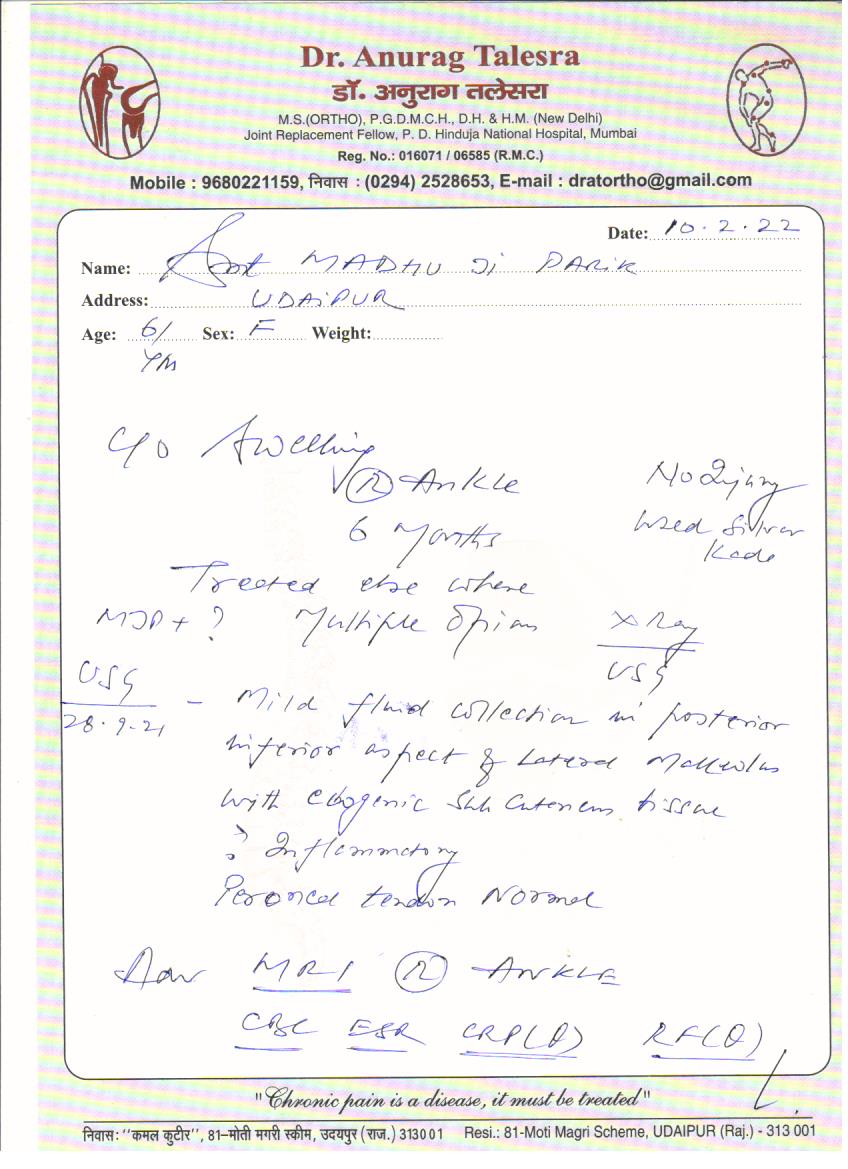 Dr. Anurag Talesra
डॉ. अनुराग तलेसरा
M.S.(ORTHO), P.G.D.M.C.H., D.H. & H.M. (New Delhi)
Joint Replacement Fellow, P. D. Hinduja National Hospital, Mumbai
Reg. No.: 016071 / 06585 (R.M.C.)
Mobile : 9680221159, निवास : (0294) 2528653, E-mail : dratortho@gmail.com
Date: 10.2.22
Name: Smt MADHU Ji PARIK
Address: UDAIPUR
Age: 61 Sex: F Weight:
C/o Swelling
(R) Ankle
6 Months
No Injury
Used Silver
Kade
Treated else where
Multiple
X Ray
USG
USG
28.9.21 - Mild fluid collection in posterior
inferior aspect of Lateral Malleolus
with echogenic Sub Cutaneous tissue
? Inflammatory
Peroneal tendon Normal
Adv MRI (R) ANKLE
CBC ESR CRP(Q) RF(Q)
"Chronic pain is a disease, it must be treated"
निवास: ''कमल कुटीर'', 81–मोती मगरी स्कीम, उदयपुर (राज.) 313001 Resi.: 81-Moti Magri Scheme, UDAIPUR (Raj.) - 313 001